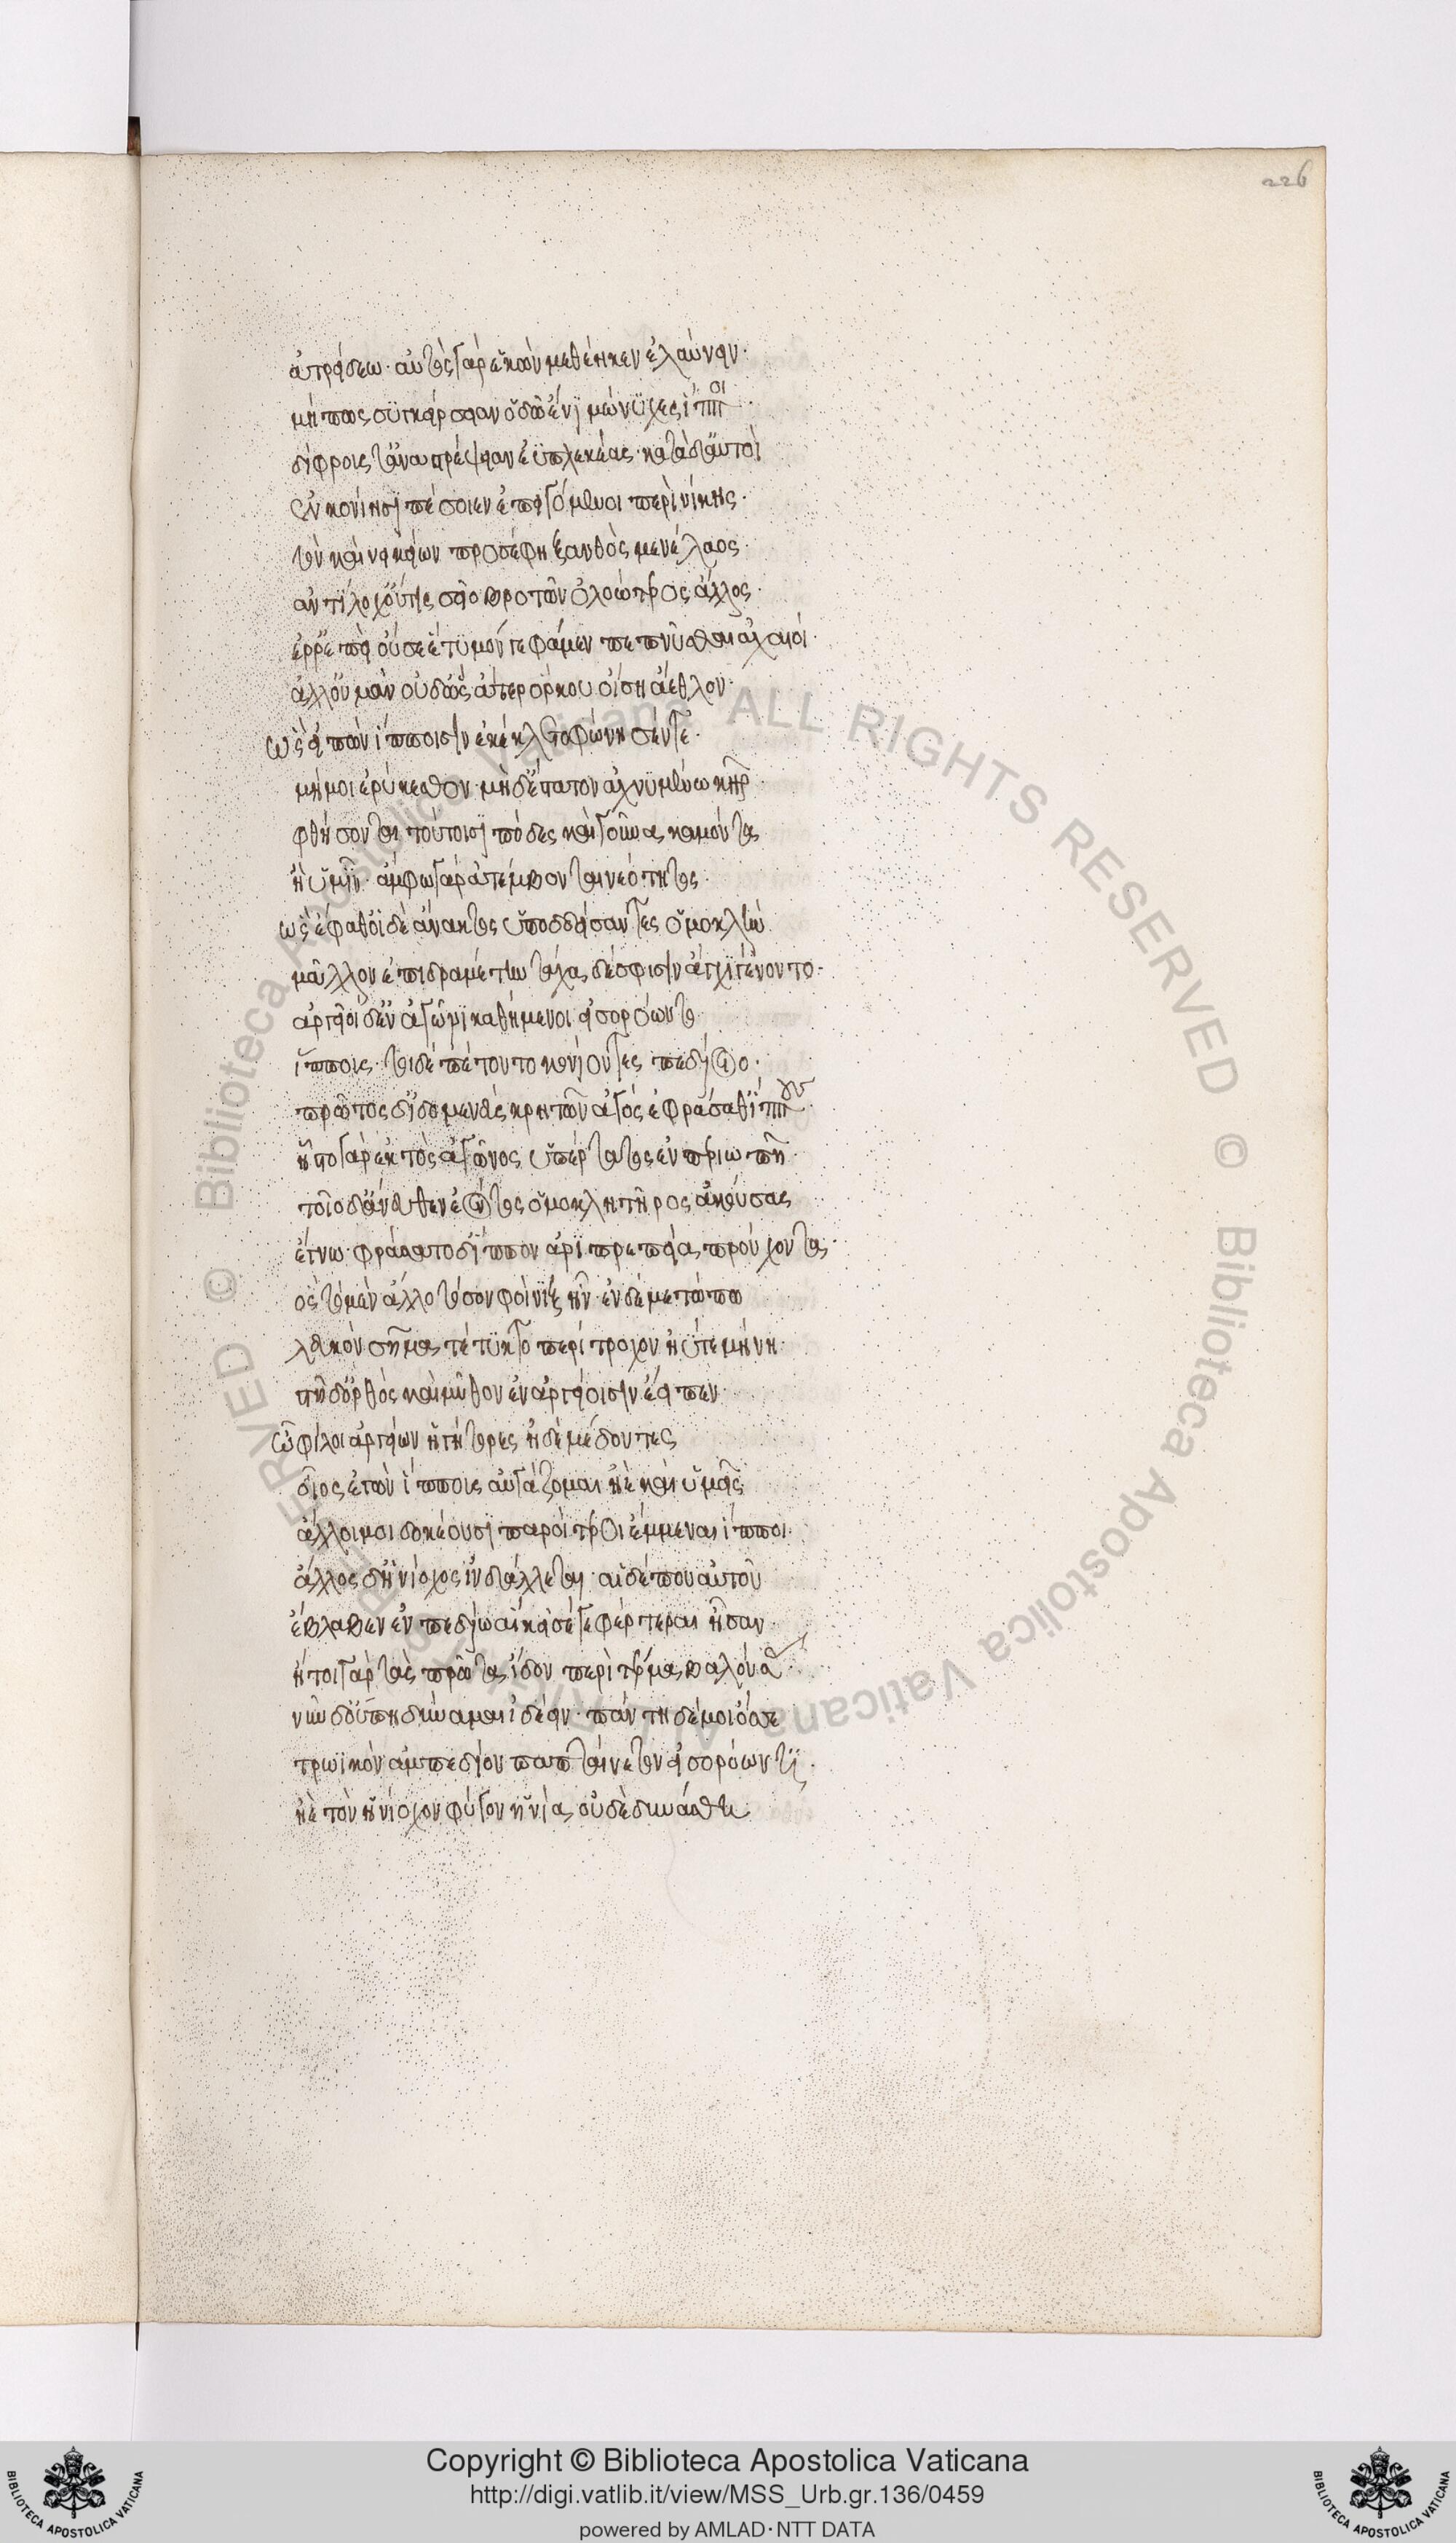 226
ἀτρείδεω· αὐτὸς γὰρ ἑκὼν μεθέηκεν ἐλαύνειν·
μή πως συγκύρσειαν ὁδῷ ἔνι μώνυχες ἵπποι·
δίφρους τ' ἀνστρέψειαν ἐϋπλεκέας· κατὰ δ' αὐτοὶ
ἐν κονίῃσι πέσοιεν ἐπειγόμενοι περὶ νίκης·
τὸν καὶ νεικείων προσέφη ξανθὸς μενέλαος·
ἀντίλοχ' οὔτις σεῖο βροτῶν ὀλοώτερος ἄλλος·
ἔρρ' ἐπεὶ οὔ σε ἔτυμόν γε φάμεν πεπνῦσθαι ἀχαιοί·
ἀλλ' οὐ μὰν οὐδ' ὣς ἄτερ ὅρκου οἴσῃ ἄεθλον·
ὣς εἰπὼν ἵπποισιν ἐκέκλετο φώνησέν τε·
μή μοι ἐρύκεσθον· μὴ δ' ἕστατον ἀχνυμένω κῆρ·
φθήσονται τούτοισι πόδες καὶ γοῦνα καμόντα
ἢ ὑμῖν· ἄμφω γὰρ ἀτέμβονται νεότητος·
ὣς ἔφαθ' οἱ δὲ ἄνακτος ὑποδδείσαντες ὁμοκλὴν
μᾶλλον ἐπιδραμέτην τάχα δέ σφισιν ἄγχι γένοντο·
ἀργεῖοι δ' ἐν ἀγῶνι καθήμενοι εἰσορόωντο
ἵππους· τοὶ δὲ πέτοντο κονίοντες πεδίοιο·
πρῶτος δ' ἰδομενεὺς κρητῶν ἀγὸς ἐφράσαθ' ἵππους·
ἧστο γὰρ ἐκτὸς ἀγῶνος ὑπέρτατος ἐν περιωπῇ·
τοῖο δ' ἄνευθεν ἐόντος ὁμοκλητῆρος ἀκούσας
ἔγνω· φράσσατο δ' ἵππον ἀριπρεπέα προὔχοντα·
ὃς τὸ μὲν ἄλλο τόσον φοῖνιξ ἦν· ἐν δὲ μετώπῳ
λευκὸν σῆμα τέτυκτο περίτροχον ἠΰτε μήνη·
στῆ δ' ὀρθὸς καὶ μῦθον ἐν ἀργείοισιν ἔειπεν·
ὦ φίλοι ἀργείων ἡγήτορες ἠδὲ μέδοντες
οἶος ἐγὼν ἵππους αὐγάζομαι ἠὲ καὶ ὑμεῖς
ἄλλοι μοι δοκέουσι παροίτεροι ἔμμεναι ἵπποι·
ἄλλος δ' ἡνίοχος ἰνδάλλεται· αἱ δέ που αὐτοῦ
ἔβλαβεν ἐν πεδίῳ αἳ κεῖσέ γε φέρτεραι ἦσαν·
ἤτοι γὰρ τὰς πρῶτα ἴδον περὶ τέρμα βαλούσας·
νῦν δ' οὔπῃ δύναμαι ἰδέειν· πάντῃ δέ μοι ὄσσε
τρωϊκὸν ἀμπεδίον παπταίνετον εἰσορόωντι·
ἠὲ τὸν ἡνίοχον φύγον ἡνία, οὐδὲ δυνάσθη
Copyright © Biblioteca Apostolica Vaticana
http://digi.vatlib.it/view/MSS_Urb.gr.136/0459
powered by AMLAD·NTT DATA